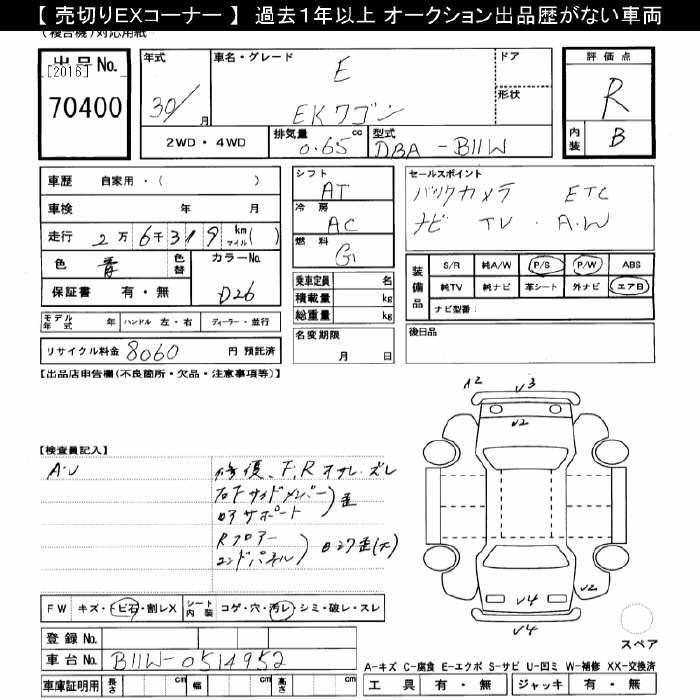 【 売切りEXコーナー 】 過去１年以上 オークション出品歴がない車両
(複合機)対応用紙
出品No.
[2016]
70400
年式
30/
月
車名・グレード
E
EKワゴン
ドア
形状
2WD・4WD
排気量
0.65 cc
型式
DBA-B11W
評価点
R
内装
B
車歴 自家用・( )
車検 年 月
走行 2万6千319 km マイル( )
色 青 色替
カラーNo.
D26
保証書 有・無
モデル年式 年 ハンドル 左・右 ディーラー・並行
リサイクル料金 8060 円 預託済
シフト
AT
冷房
AC
燃料
G
乗車定員 名
積載量 kg
総重量 kg
名変期限
月 日
セールスポイント
バックカメラ ETC
ナビ TV . A.W
装備品
S/R 純A/W P/S P/W ABS
純TV 純ナビ 革シート 外ナビ エアB
ナビ型番:
後日品
【出品店申告欄(不良箇所・欠品・注意事項等)】
【検査員記入】
A・U
修復、F,R オサレ・ズレ
右Fサイドメンバー
ロアサポート
歪
Rフロアー
エンドパネル
A2
V3
V2
V2
V4
V4
スペア
FW キズ・トビ石・割レX
シート内装 コゲ・穴・汚レ・シミ・破レ・スレ
登録No.
車台No. B11W-0514952
車庫証明用 長さ cm 幅 cm 高さ cm
A-キズ C-腐食 E-エクボ S-サビ U-凹ミ W-補修 XX-交換済
工具 有・無 ジャッキ 有・無